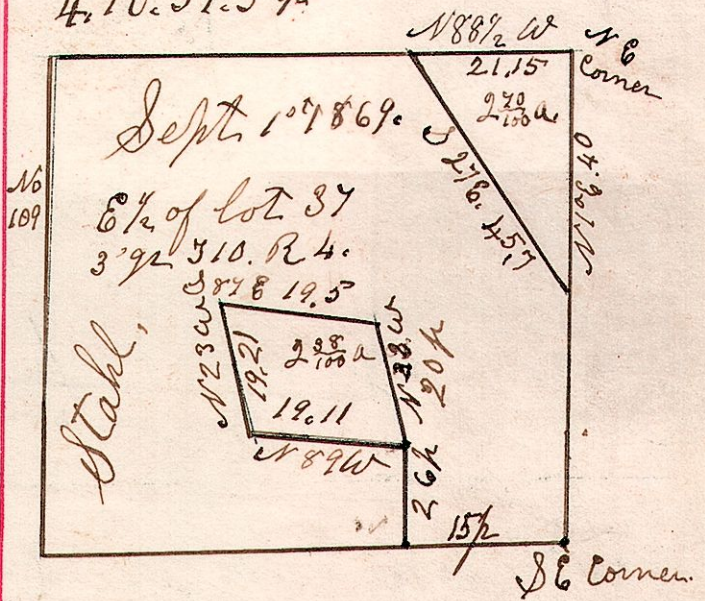 4.10.37.3 qr
N 88½ W
N E
Corner
21.15
2 70/100 a.
Sept. 1st 1869.
S 27 E. 45.7
N 1 0g. 40
No
109
E ½ of lot 37
3 qr T 10. R 4.
S 87 E 19.5
Stahl,
N 23 W
19.21
2 38/100 a
20 p
19.11
N 89 W
26 p
15 p
S E Corner.